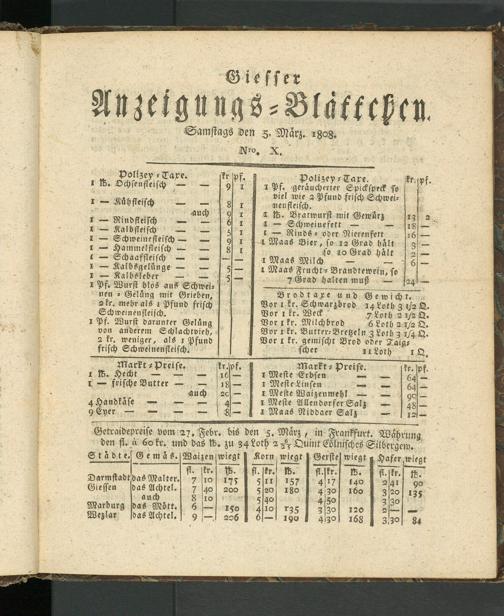 Giesser
Anzeigungs-Blättchen.
Samstags den 5. März. 1808.
Nro. X.
Polizey-Taxe. kr. pf.
1 ℔. Ochsenfleisch — — 9 1
1 — Kühfleisch — — 8 1
auch 9 1
1 — Rindfleisch — — 6 1
1 — Kalbfleisch — — 5 1
1 — Schweinefleisch — — 9 1
1 — Hammelfleisch — — 8 1
1 — Schaaffleisch — —
1 — Kalbsgelünge — — 5 —
1 — Kalbsleber — — 5 —
1 Pf. Wurst blos aus Schwei-
nen-Gelüng mit Grieben,
2 kr. mehr als 1 Pfund frisch
Schweinenfleisch.
1 Pf. Wurst darunter Gelüng
von anderem Schlachtvieh,
2 kr. weniger, als 1 Pfund
frisch Schweinenfleisch.
Polizey-Taxe. kr. pf.
1 Pf. geräucherter Spickspeck so
viel wie 2 Pfund frisch Schwei-
nenfleisch.
1 ℔. Bratwurst mit Gewürz 13 2
1 — Schweinefett — — 18 —
1 — Rinds- oder Nierenfett 16 —
1 Maas Bier, so 12 Grad hält 3 —
so 10 Grad hält 2 —
1 Maas Milch — — 6 —
1 Maas Frucht-Brandtewein, so
7 Grad halten muß — 24 —
Brodtaxe und Gewicht.
Vor 1 kr. Schwarzbrod 14 Loth 3 1/2 Q.
Vor 1 kr. Weck 7 Loth 2 1/2 Q.
Vor 1 kr. Milchbrod 6 Loth 2 1/2 Q.
Vor 1 kr. Butter-Bretzeln 3 Loth 3 1/4 Q.
Vor 1 kr. gemischt Brod oder Taig-
scher 11 Loth 1 Q.
Markt-Preise. kr. pf.
1 ℔. Hecht — — 16 —
1 — frische Butter — — 18 —
auch 20 —
4 Handkäse — — 4 —
9 Eyer — — 8 —
Markt-Preise. kr. pf.
1 Meste Erbsen — 64 —
1 Meste Linsen — 64 —
1 Meste Waizenmehl — 90 —
1 Meste Allendorfer Salz 48 —
1 Maas Niddaer Salz — 12 —
Getraidepreise vom 27. Febr. bis den 5. März, in Frankfurt. Währung
den fl. à 60 kr. und das ℔. zu 34 Loth Quint Cölnisches Silbergew.
Städte. Gemäs. Waizen wiegt Korn wiegt Gerste wiegt Hafer wiegt
fl. kr. ℔. fl. kr. ℔. fl. kr. ℔. fl. kr. ℔.
Darmstadt das Malter. 7 10 175 5 11 157 4 17 140 2 41 90
Giessen das Achtel. 7 40 200 5 20 180 4 30 160 3 20 135
auch 8 10 5 40 4 50 3 30
Marburg das Mött. 6 — 150 4 10 135 3 30 120 2 — —
Wezlar das Achtel. 9 — 206 6 — 190 4 30 168 3 30 84